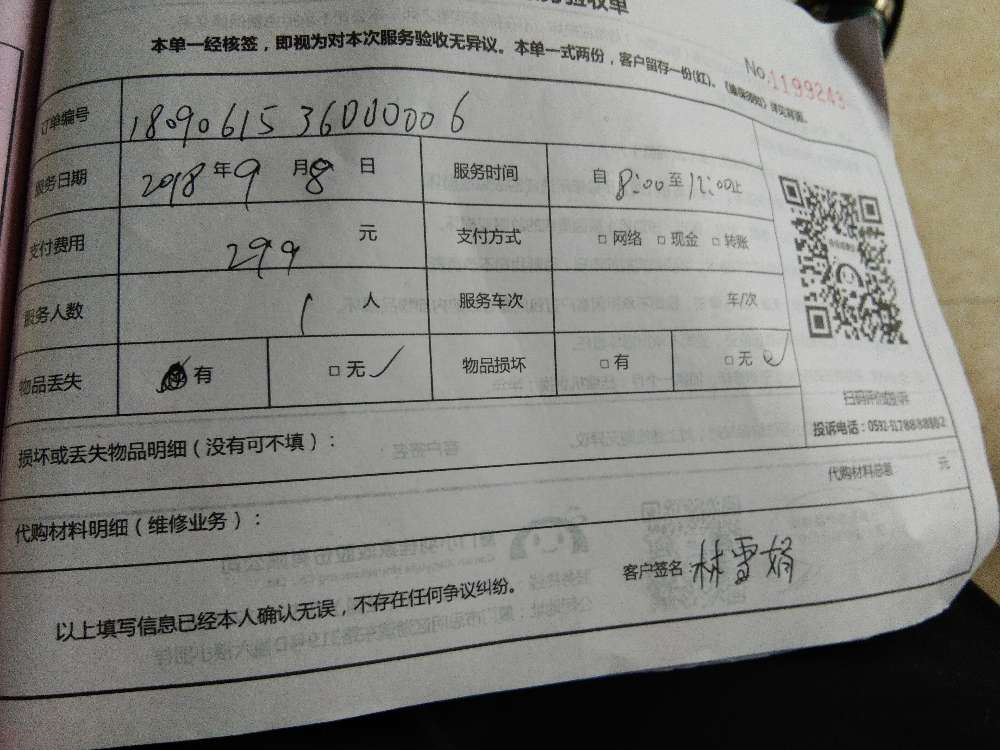 验收单
本单一经核签，即视为对本次服务验收无异议。本单一式两份，客户留存一份(红)。
No.1199243
订单编号 1809061536000006
服务日期 2018年9月8日 服务时间 自8:00至12:00止
支付费用 299元 支付方式 □网络 □现金 □转账
服务人数 1人 服务车次 车/次
物品丢失 有 □无✓ 物品损坏 □有 □无✓
扫码评价或投诉
损坏或丢失物品明细（没有可不填）：
投诉电话：0592-
代购材料明细（维修业务）： 代购材料总额 元
以上填写信息已经本人确认无误，不存在任何争议纠纷。 客户签名 林雪娟